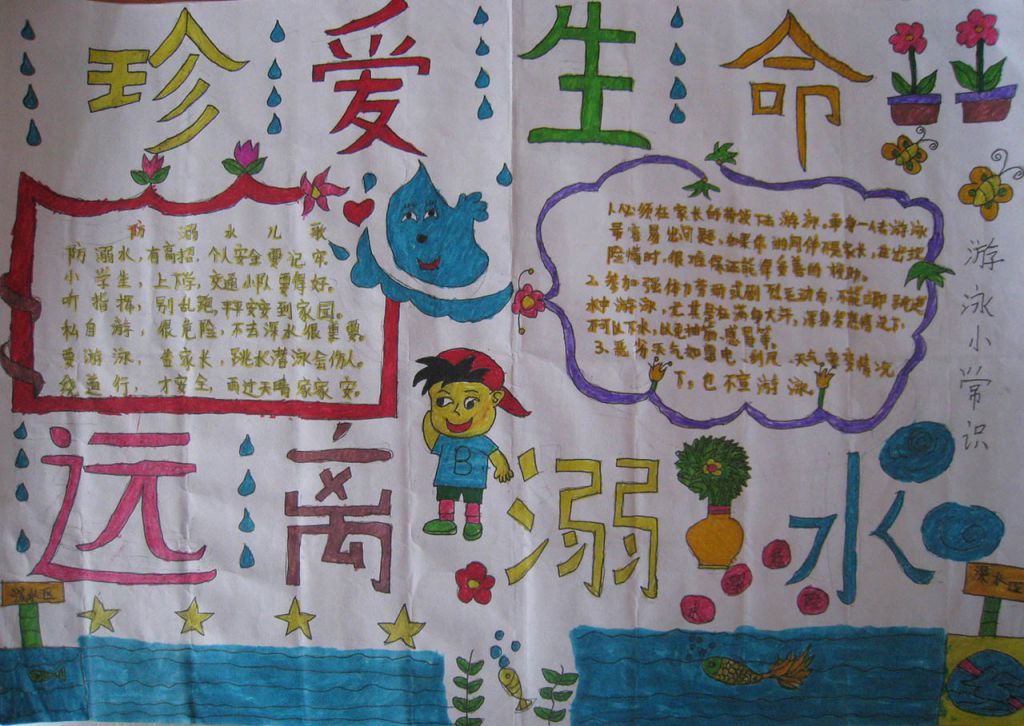 珍爱生命
防溺水儿歌
防溺水,有高招,个人安全要记牢
小学生,上下学,交通小队要得好。
听指挥,别乱跑,平平安安到家园。
私自游,很危险,不去深水很重要。
要游泳,查家长,跳水潜泳会伤人。
绕道行,才安全,雨过天晴家家安。
1.必须在家长的带领下去游泳。单身一人去游泳
最容易出问题,如果你的同伴不是家长,在出现
险情时,很难保证能得到妥善的
2.参加强体力劳动或剧烈运动后,不能立即跳进
水中游泳,尤其是在满身大汗,浑身发热的情况下,
不可以下水,以免抽筋、感冒等。
3.恶劣天气如雷电、刮风、天气突变情况
下,也不宜游泳。
游泳小常识
B
远离溺水
深水区
深水区